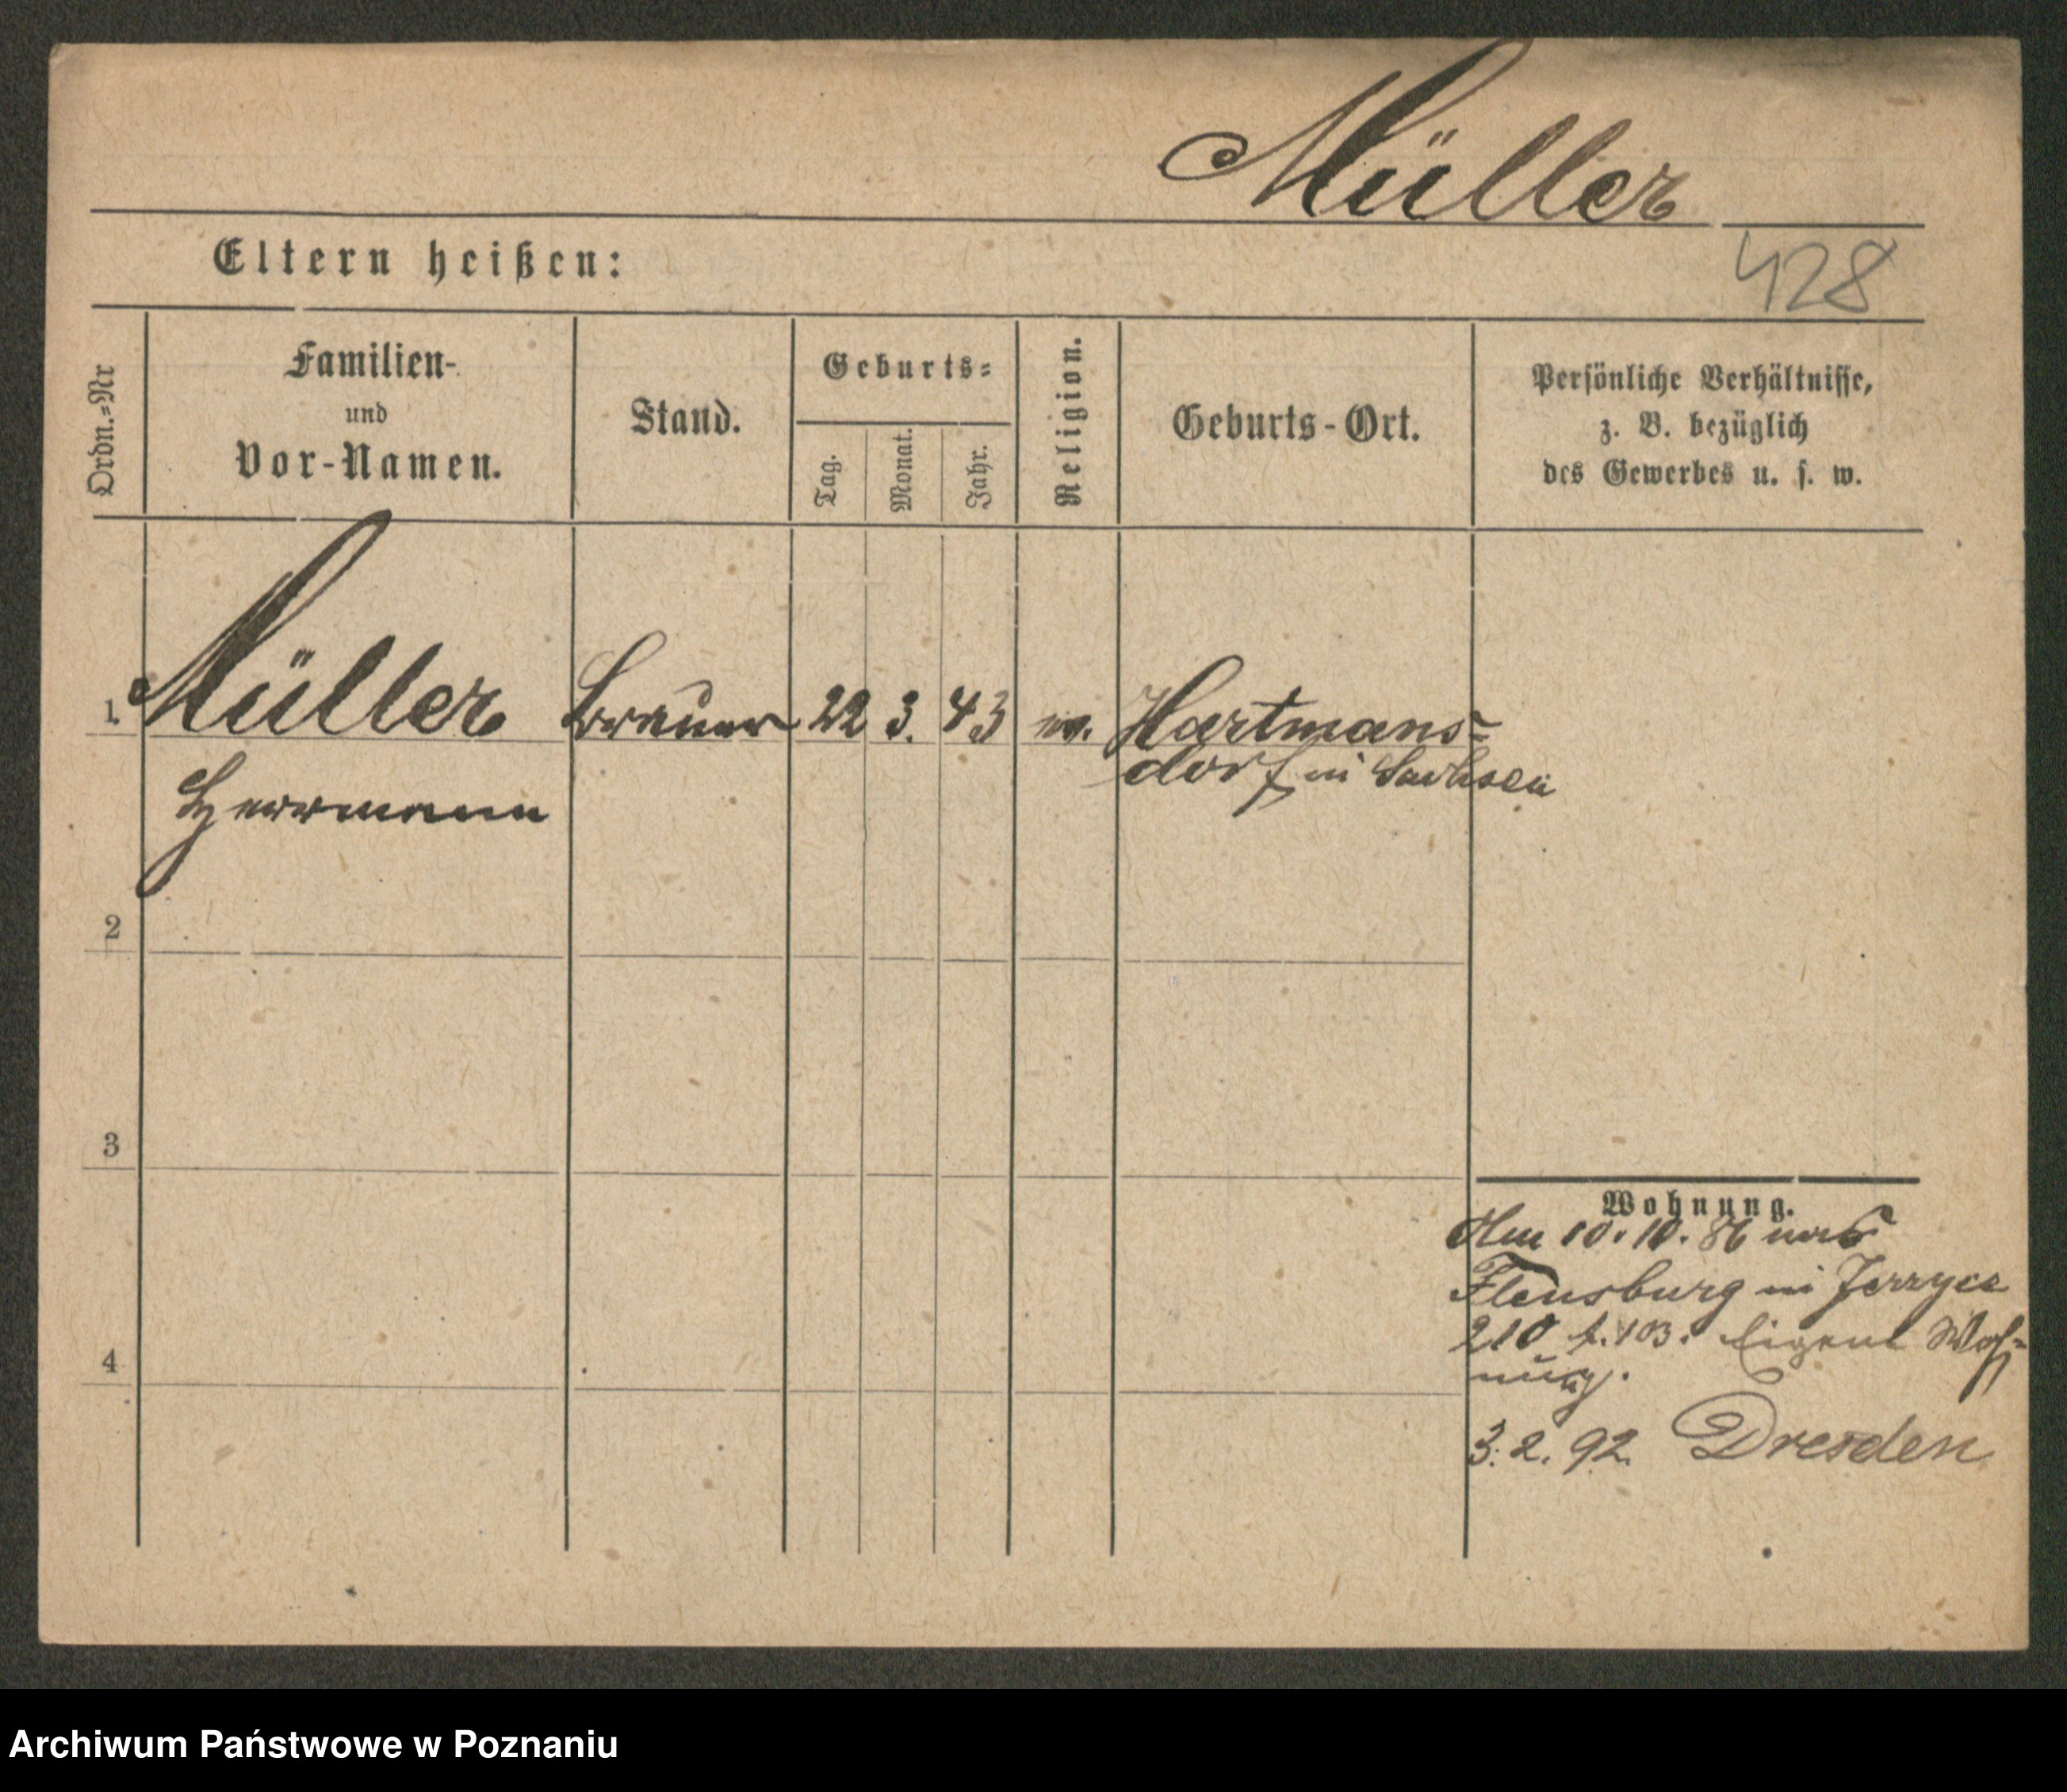 Müller
428
Eltern heißen:
Ordn.=Nr
Familien-
und
Vor-Namen.
Stand.
Geburts=
Tag.
Monat.
Jahr.
Religion.
Geburts-Ort.
Persönliche Verhältnisse,
z. B. bezüglich
des Gewerbes u. s. w.
1. Müller Brauer 22 3. 43 ev. Hartmans=
dorf in Sachsen
Herrmann
2
3
4
Wohnung.
10. 10. 86 aus
Flensburg in Jerzyce
210 Eigene Woh=
nung.
3. 2. 92. Dresden
Archiwum Państwowe w Poznaniu